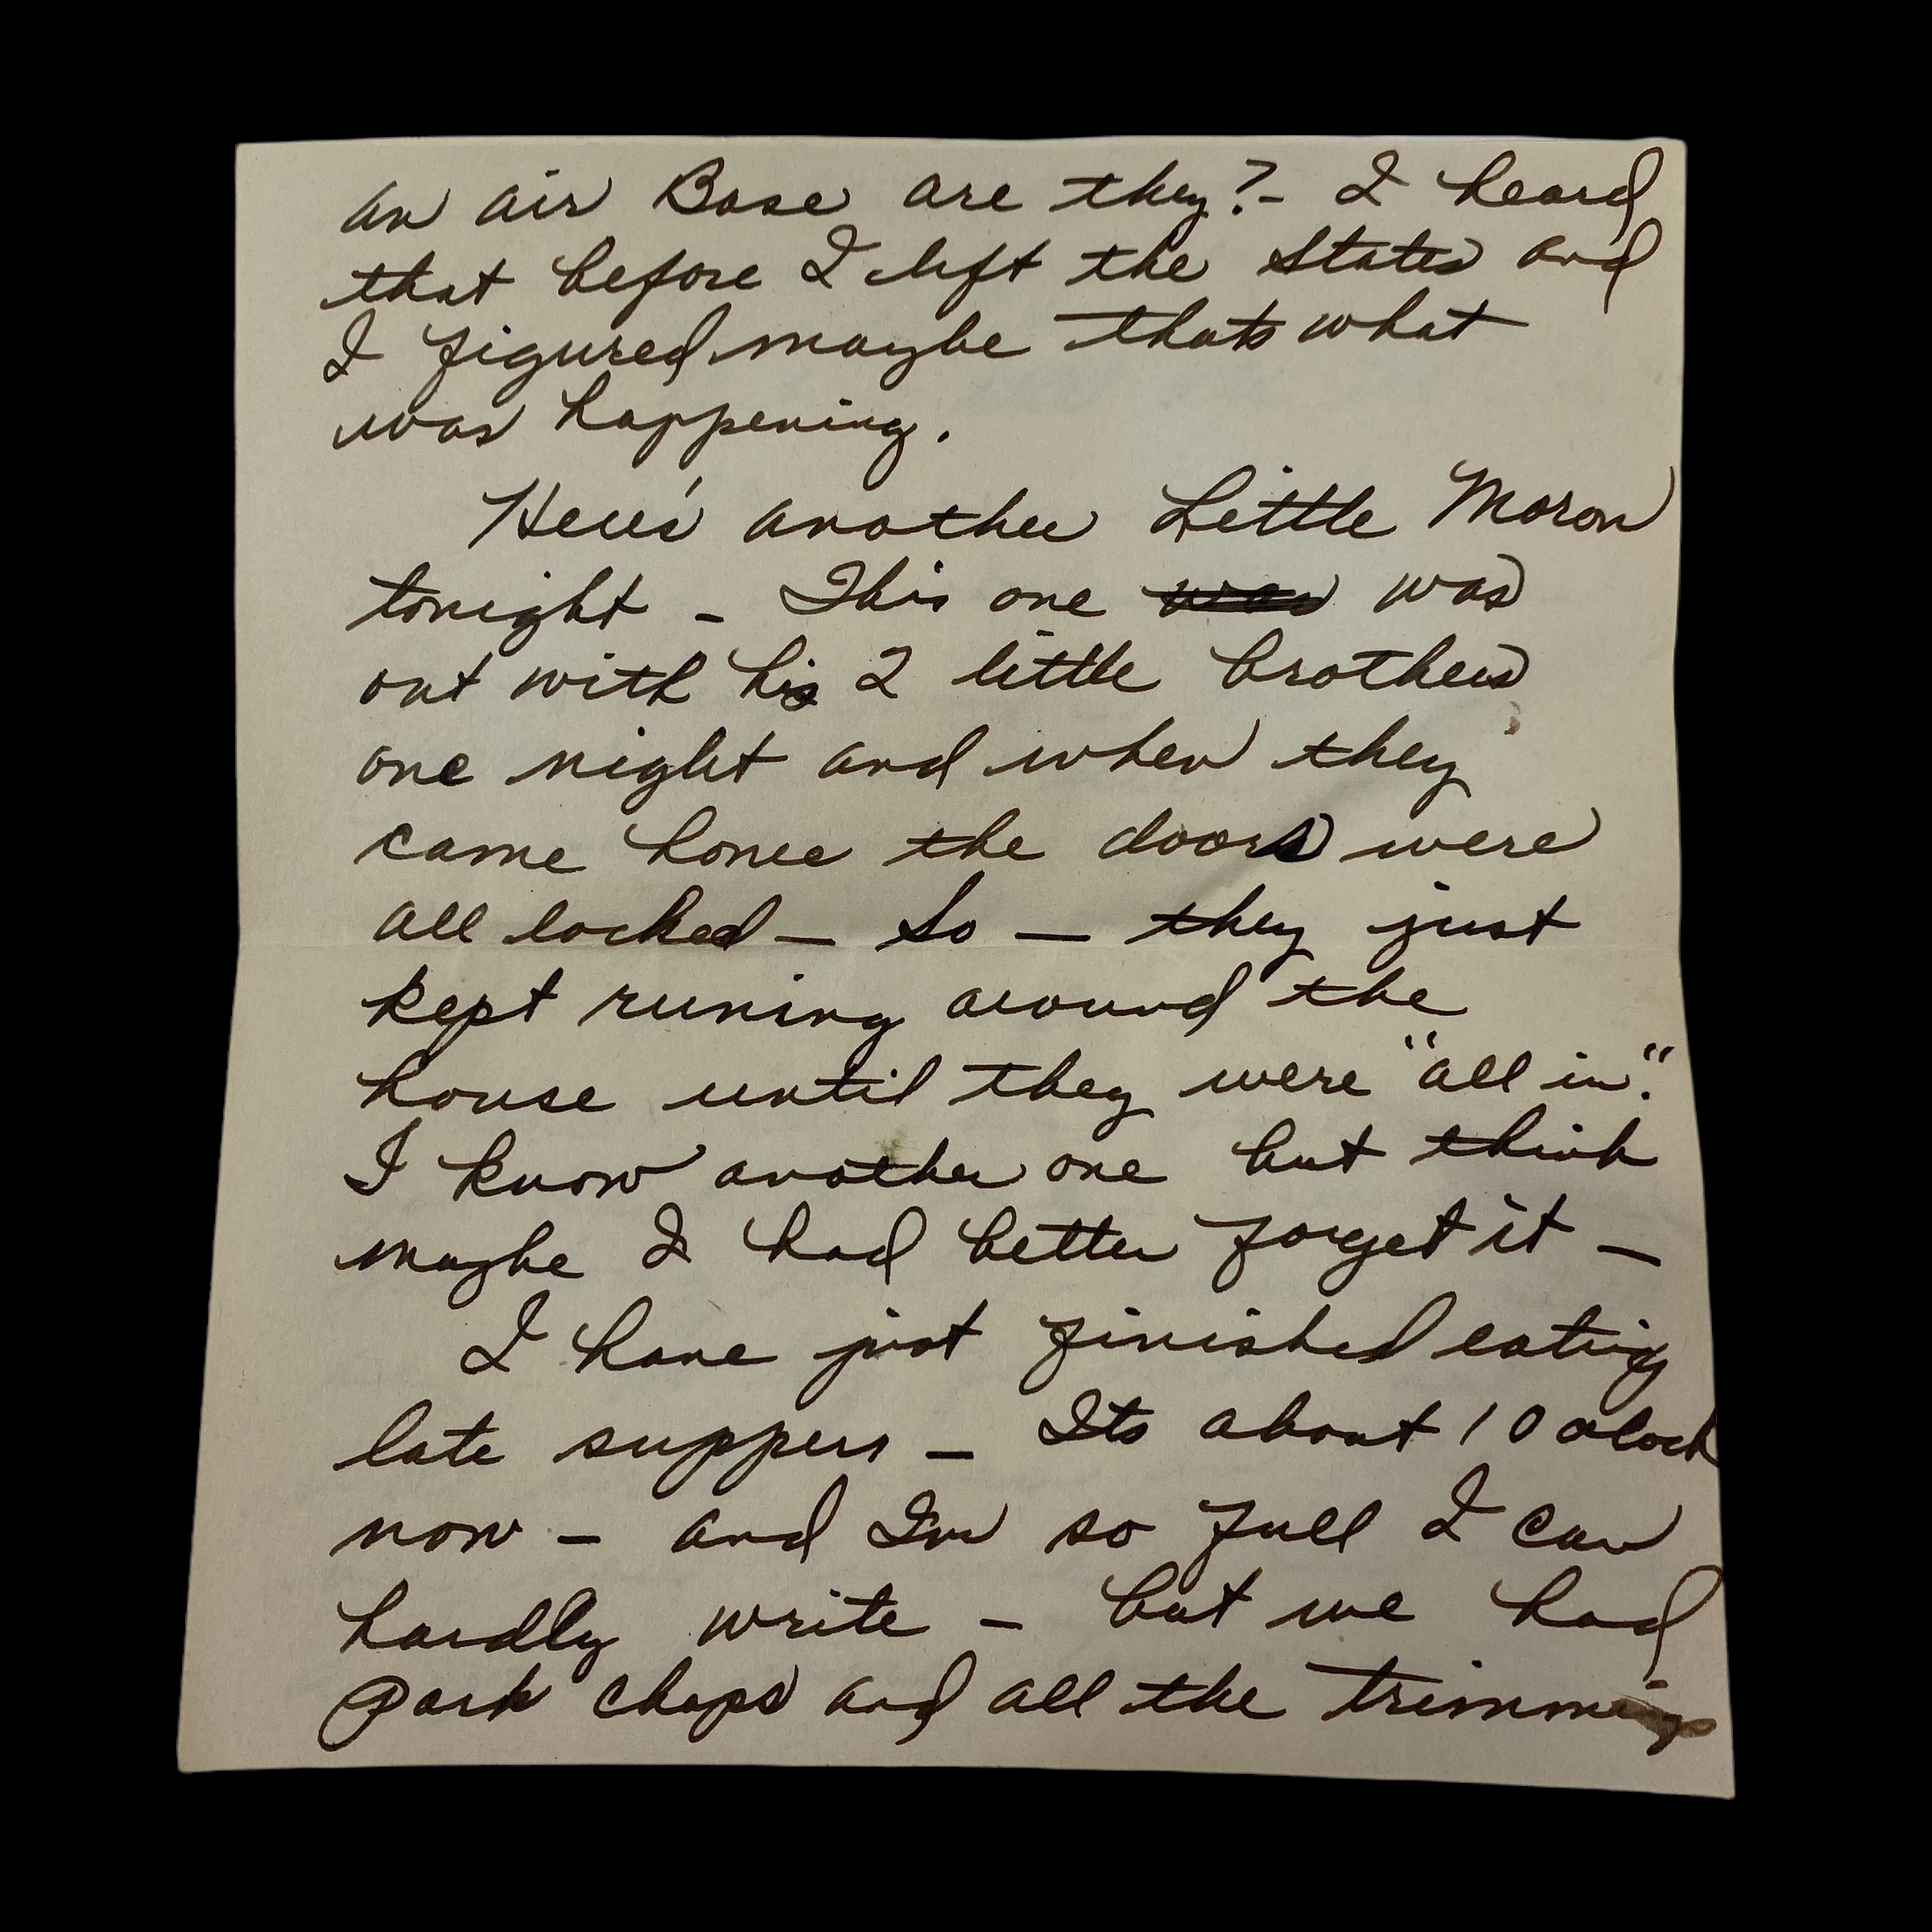 an air Base are they?- I heard
that before I left the States and
I figured maybe thats what
was happening.
Here's another Little Moron
tonight - This one was was
out with his 2 little brothers
one night and when they
came home the doors were
all locked - So - they just
kept runing around the
house until they were "all in".
I know another one but think
maybe I had better forget it -
I have just finished eating
late suppers - Its about 10 oclock
now - and Im so full I can
hardly write - but we had
Pork chops and all the trimmings